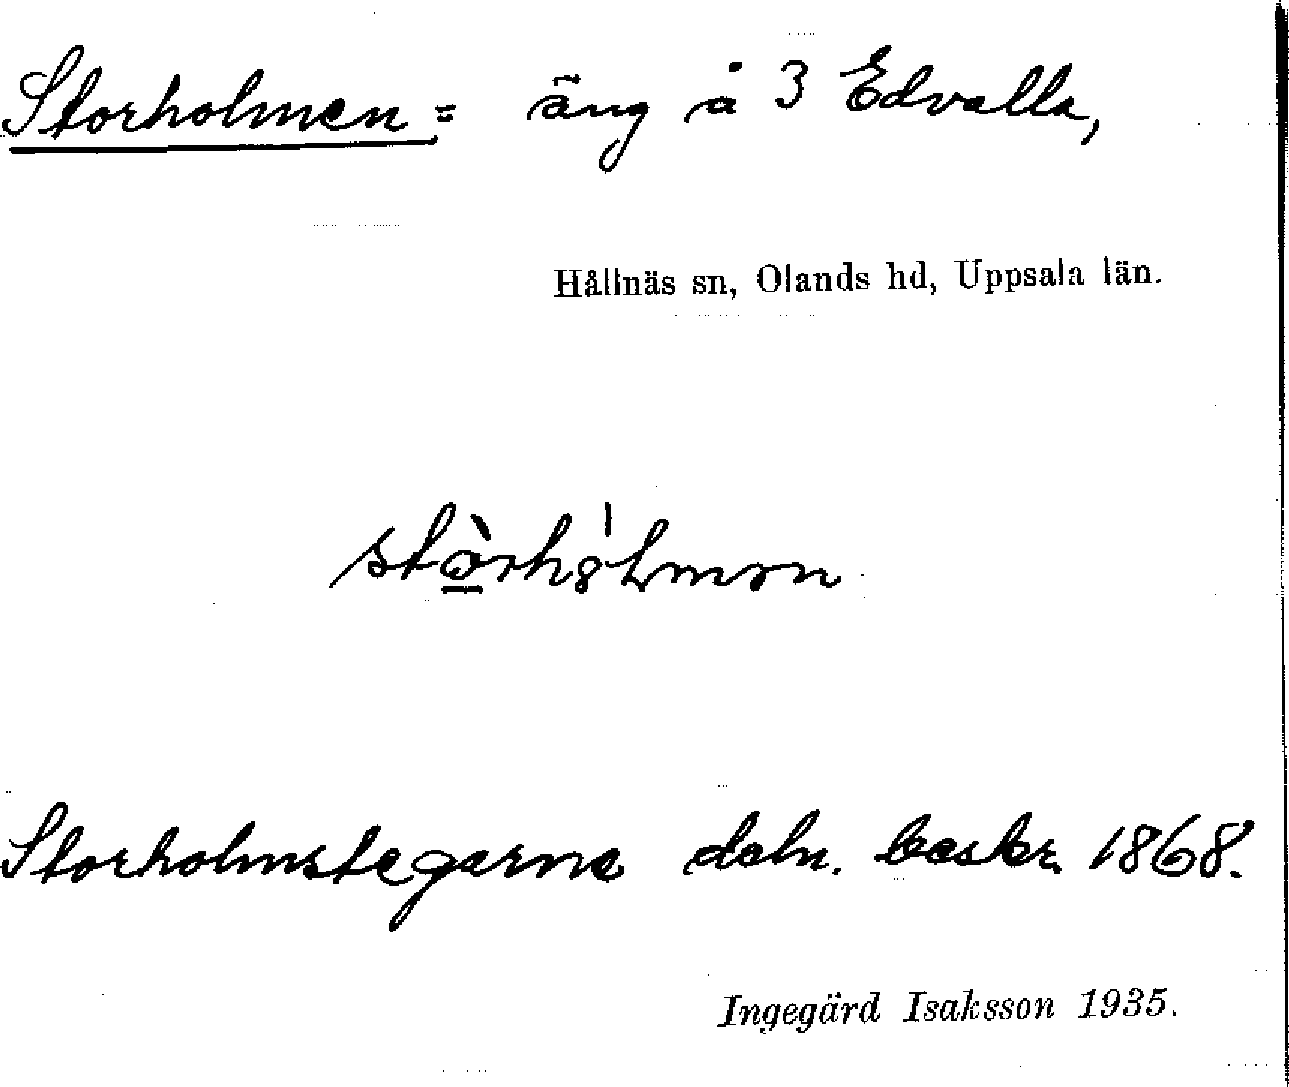 Storholmen = äng å 3 Edvalla,
Hållnäs sn, Olands hd, Uppsala län.
Storholmstegarna deln. beskr. 1868.
Ingegärd Isaksson 1935.